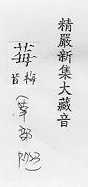 精嚴新集大藏音
莓
梅
(草部